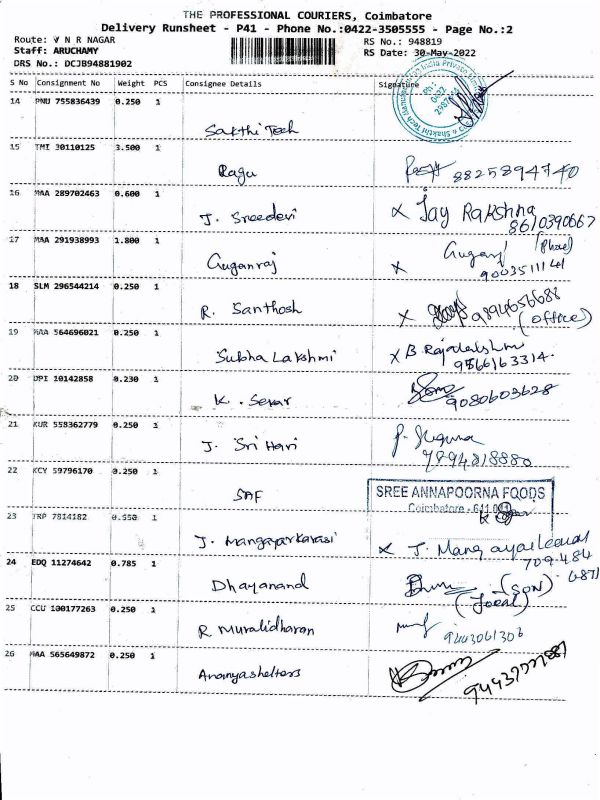 THE PROFESSIONAL COURIERS, Coimbatore
Delivery Runsheet - P41 - Phone No.:0422-3505555 - Page No.:2
Route: V N R NAGAR
RS No.: 948819
Staff: ARUCHAMY
RS Date: 30-May-2022
DRS No.: DCJB94881902
S No Consignment No Weight PCS Consignee Details Signature
14 PNU 755836439 0.250 1
Sakthi Tech
15 TMI 30110125 3.500 1
Ragu 8825894740
16 MAA 289702463 0.600 1
J. Sreedevi x Jay Rakshna
8610390667
17 MAA 291938993 1.800 1
Guganraj x Gugan
9003511141
18 SLM 296544214 0.250 1
R. Santhosh x 9894656688
(office)
19 MAA 564696021 0.250 1
Subha Lakshmi x B. Rajalakshmi
9566163314.
20 DPI 10142858 0.230 1
K. Sekar 9080603628
21 KUR 558362779 0.250 1
J. Sri Hari
7894818880
22 KCY 59796170 0.250 1
SAF SREE ANNAPOORNA FOODS
Coimbatore - 641 041
23 TRP 7814182 0.550 1
J. Mangayarkarasi x J. Mangayarkarasi
709484
24 EDQ 11274642 0.785 1
Dhayanand (SON) 687
25 CCU 100177263 0.250 1
R Muralidharan 9443061306
26 MAA 565649872 0.250 1
Ananyashelters